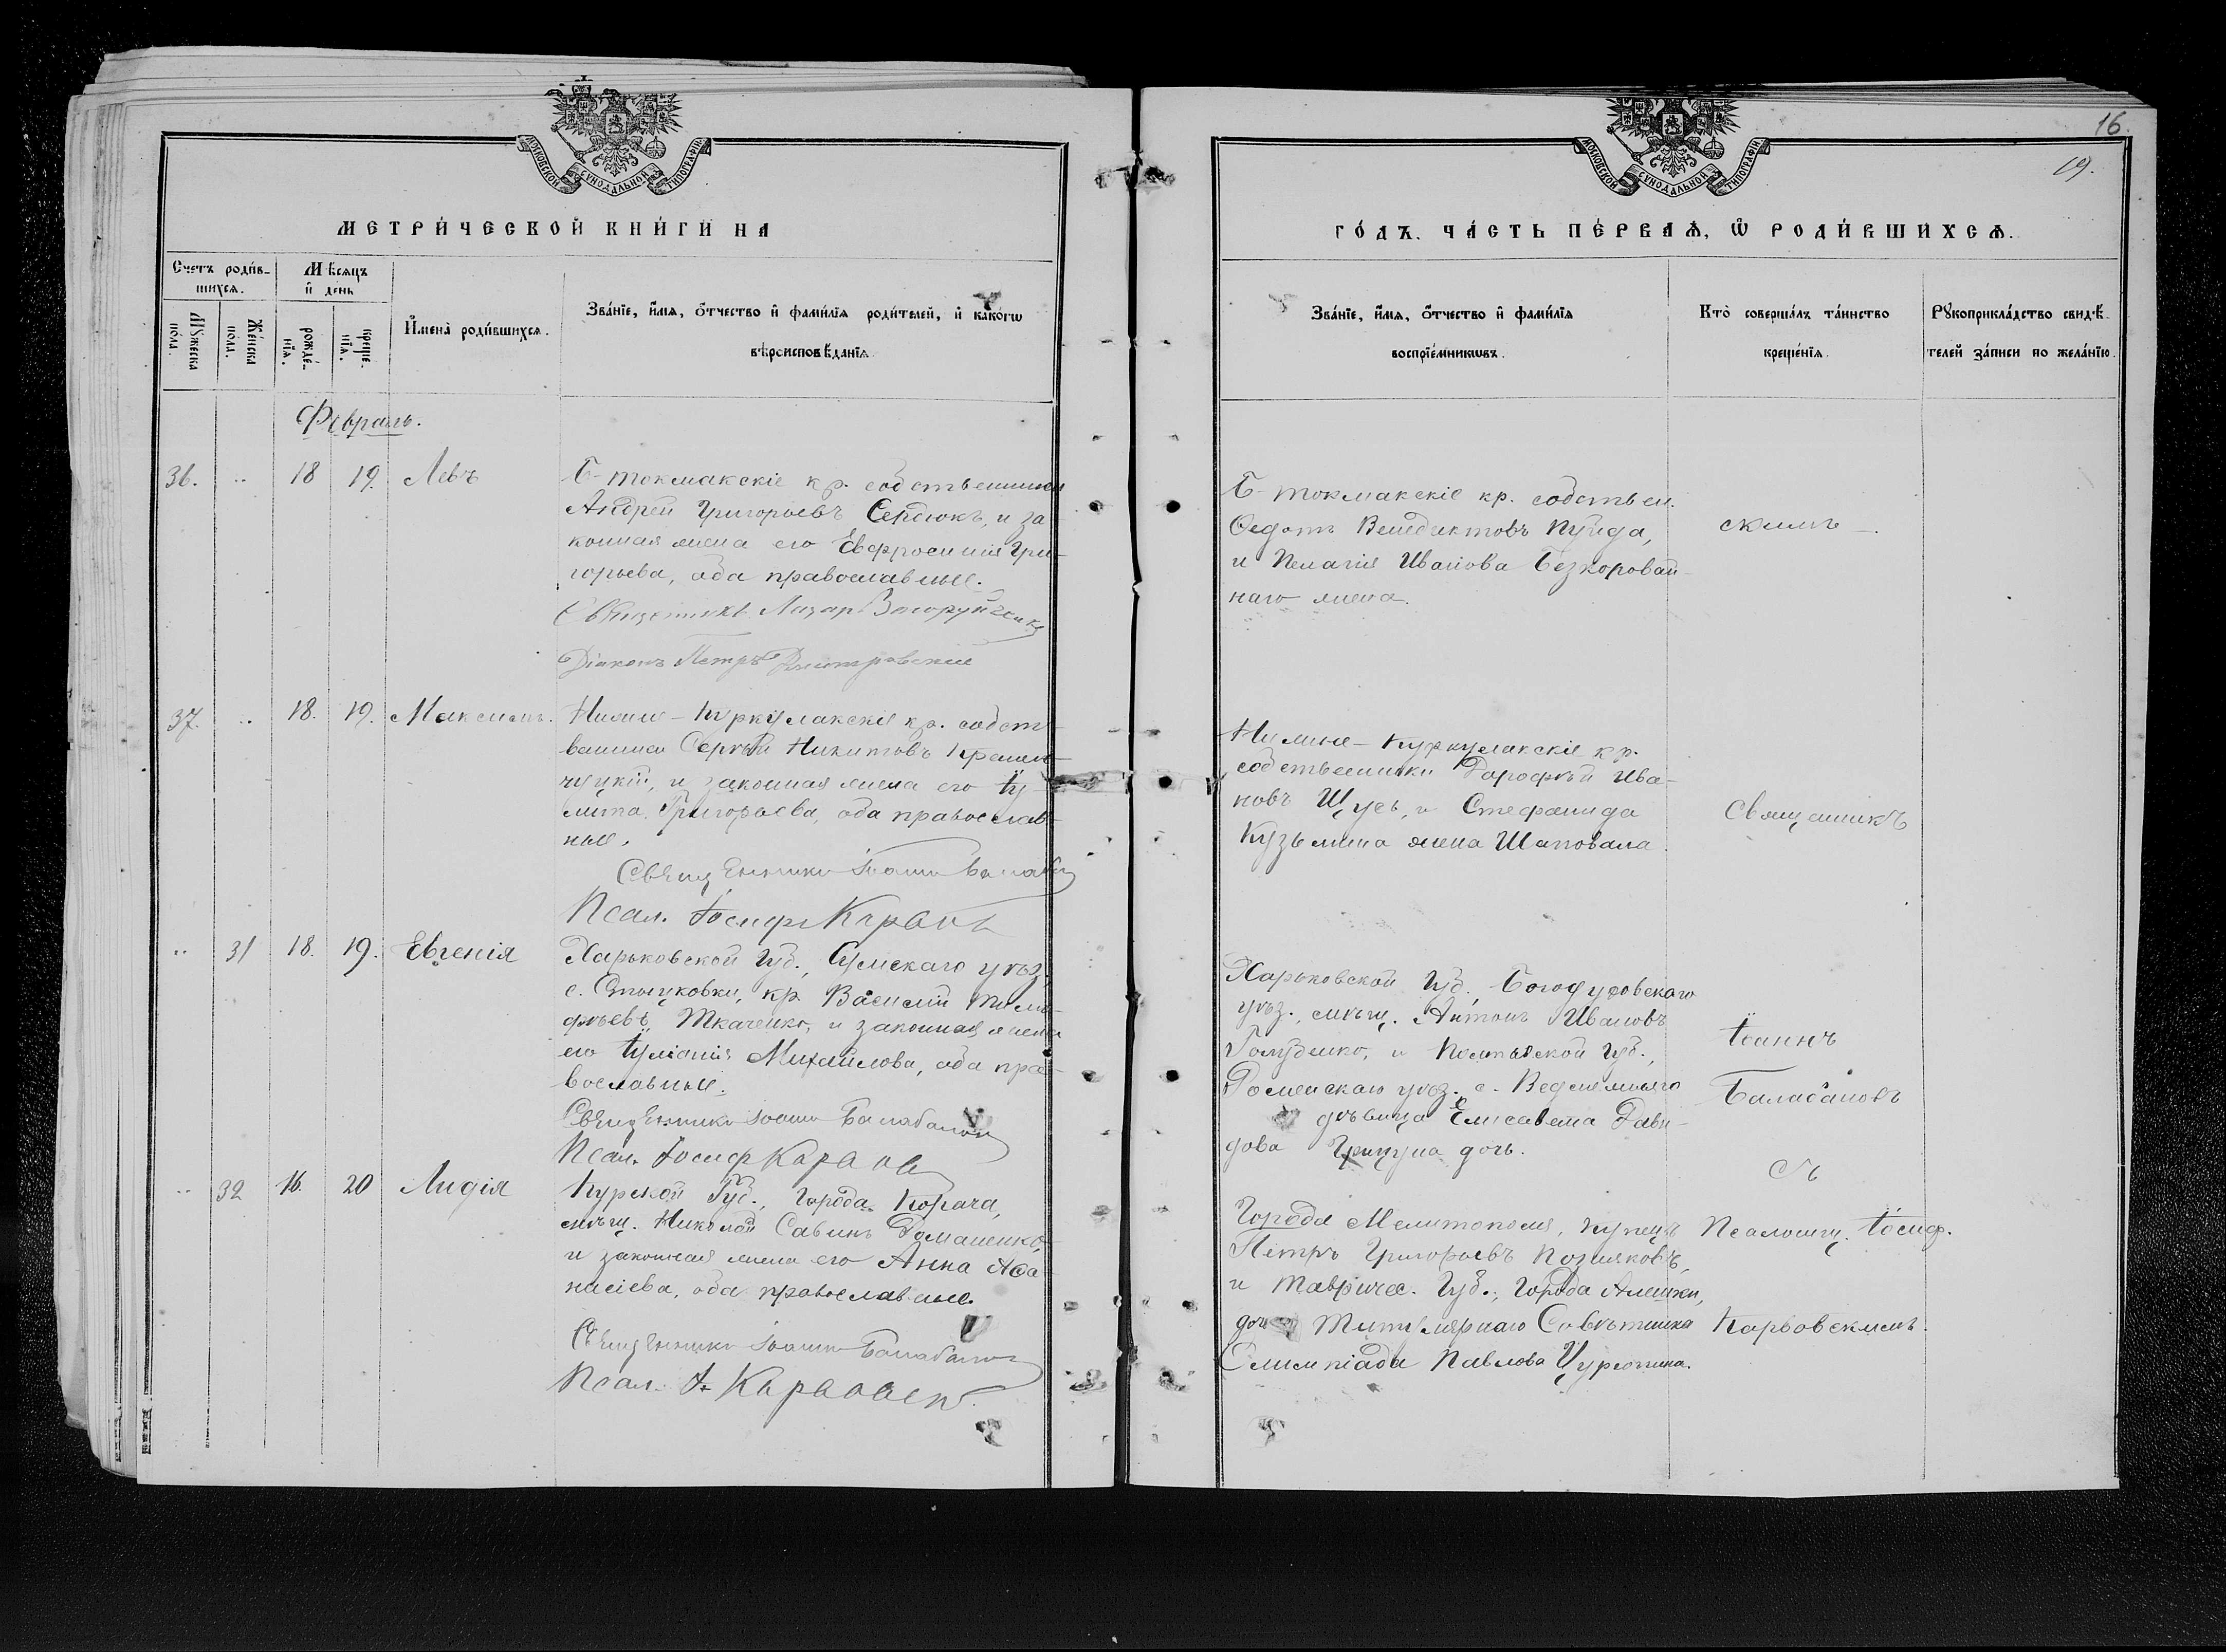 16.
19.
МОСКОВСКОЙ СУНОДАЛЬНОЙ ТИПОГРАФІИ
МЕТРИ́ЧЕСКОЙ КНИ́ГИ НА
Счетъ роди́в-
шихсѧ.
Мѣсяцъ
и҆ день
Мꙋ́жеска
пола.
Же́нска
пола.
рожде́-
нїѧ.
креще́-
нїѧ.
И҆мена̀ роди́вшихсѧ.
Зва́нїе, и҆́мѧ, ѻ҆́тчество и҆ фами́лїѧ роди́телей, и҆ како́гѡ
вѣроисповѣ́данїѧ.
Февраль.
36.
..
18
19.
Левъ
Б-токмакскіе кр. собственники
Андрей Григорьевъ Сердюкъ, и за-
конная жена его Евфросинія Гри-
горьева, оба православные.
Священникъ Лазар
Діаконъ Петръ Дмитровскій
37.
..
18.
19.
Максимъ.
Нижне-Куркулакскіе кр. собст-
венники Сергѣй Никитовъ Кремен-
чуцкій, и законная жена его Іу-
лита Григорьева, оба православ-
ные.
Священникъ Іоаннъ
Псал. Іосиф
..
31
18.
19.
Евгенія
Харьковской Губ., Сумскаго уѣз.
с. кр. Василій Тимо-
фѣевъ Ткаченко, и законная жена
его Іуліанія Михайлова, оба пра-
вославные.
Священникъ Іоаннъ Балабанов
Псал. Іосиф
..
32
16.
20
Лидія
Курской Губ., Города Корача,
мѣщ. Николай Савинъ Домашенко,
и законная жена его Анна Аѳа-
насіева, оба православные.
Священникъ Іоаннъ Балабанов
Псал. І.
МОСКОВСКОЙ СУНОДАЛЬНОЙ ТИПОГРАФІИ
ГО́ДЪ. ЧА́СТЬ ПЕ́РВАѦ, Ѡ҆ РОДИ́ВШИХСѦ.
Зва́нїе, и҆́мѧ, ѻ҆́тчество и҆ фами́лїѧ
воспрїе́мникѡвъ.
Кто̀ соверша́лъ та́инство
креще́нїѧ.
Рꙋкоприкла́дство свидѣ́-
телей за́писи по жела́нїю.
Б-токмакскіе кр. собствен.
Ѳедотъ Венедиктовъ Пуйда,
и Пелагія Иванова Безкоровай-
наго жена.
скимъ.
Нижне-Куркулакскіе кр.
собственники Дорофѣй Ива-
новъ Щусь, и Стефанида
Кузьмина жена Шаповала.
Священникъ
Харьковской Губ., Богодуховскаго
уѣз., мѣщ. Антонъ Ивановъ
Голубенко, и Полтавской Губ.,
Роменскаго уѣз. с.
дѣвица Елисавета Дави-
дова дочь.
Іоаннъ
Балабановъ
съ
Города Мелитополя, купецъ
Петръ Григорьевъ Позняковъ,
и Тавричес. Губ., Города Алешки,
дочь Титулярнаго Совѣтника
Олимпіада Павлова
Псаломщ. Іосиф.
Карвовскимъ.